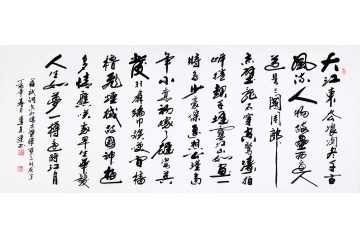 大江東去浪淘尽千古
風流人物故垒西邊人
道是三國周郎
赤壁乱石穿空驚濤拍
岸捲起千堆雪江山如画一
時多少豪杰遥想公瑾當
年小喬初嫁了雄姿英
發羽扇綸巾談笑间樯
橹飛灰烟滅故國神游
多情應笑我早生華髮
人生如夢一樽還酹江月
蘇軾詞念奴嬌赤壁懷古